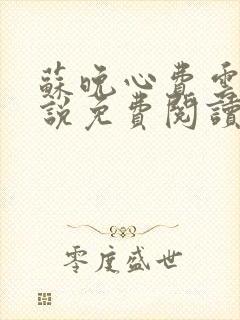 蘇晚心費雲
說免費閱讀
零度盛世